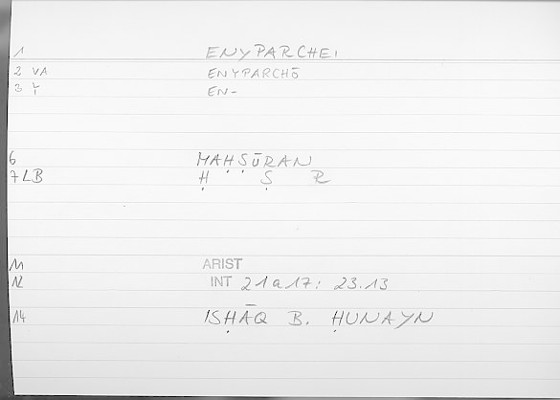 1 ENYPARCHEI
2 VA ENYPARCHŌ
3 Y EN-
6 MAḤṢŪRAN
7 LB Ḥ Ṣ R
11 ARIST
12 INT 21a17: 23.13
14 ISḤĀQ B. ḤUNAYN